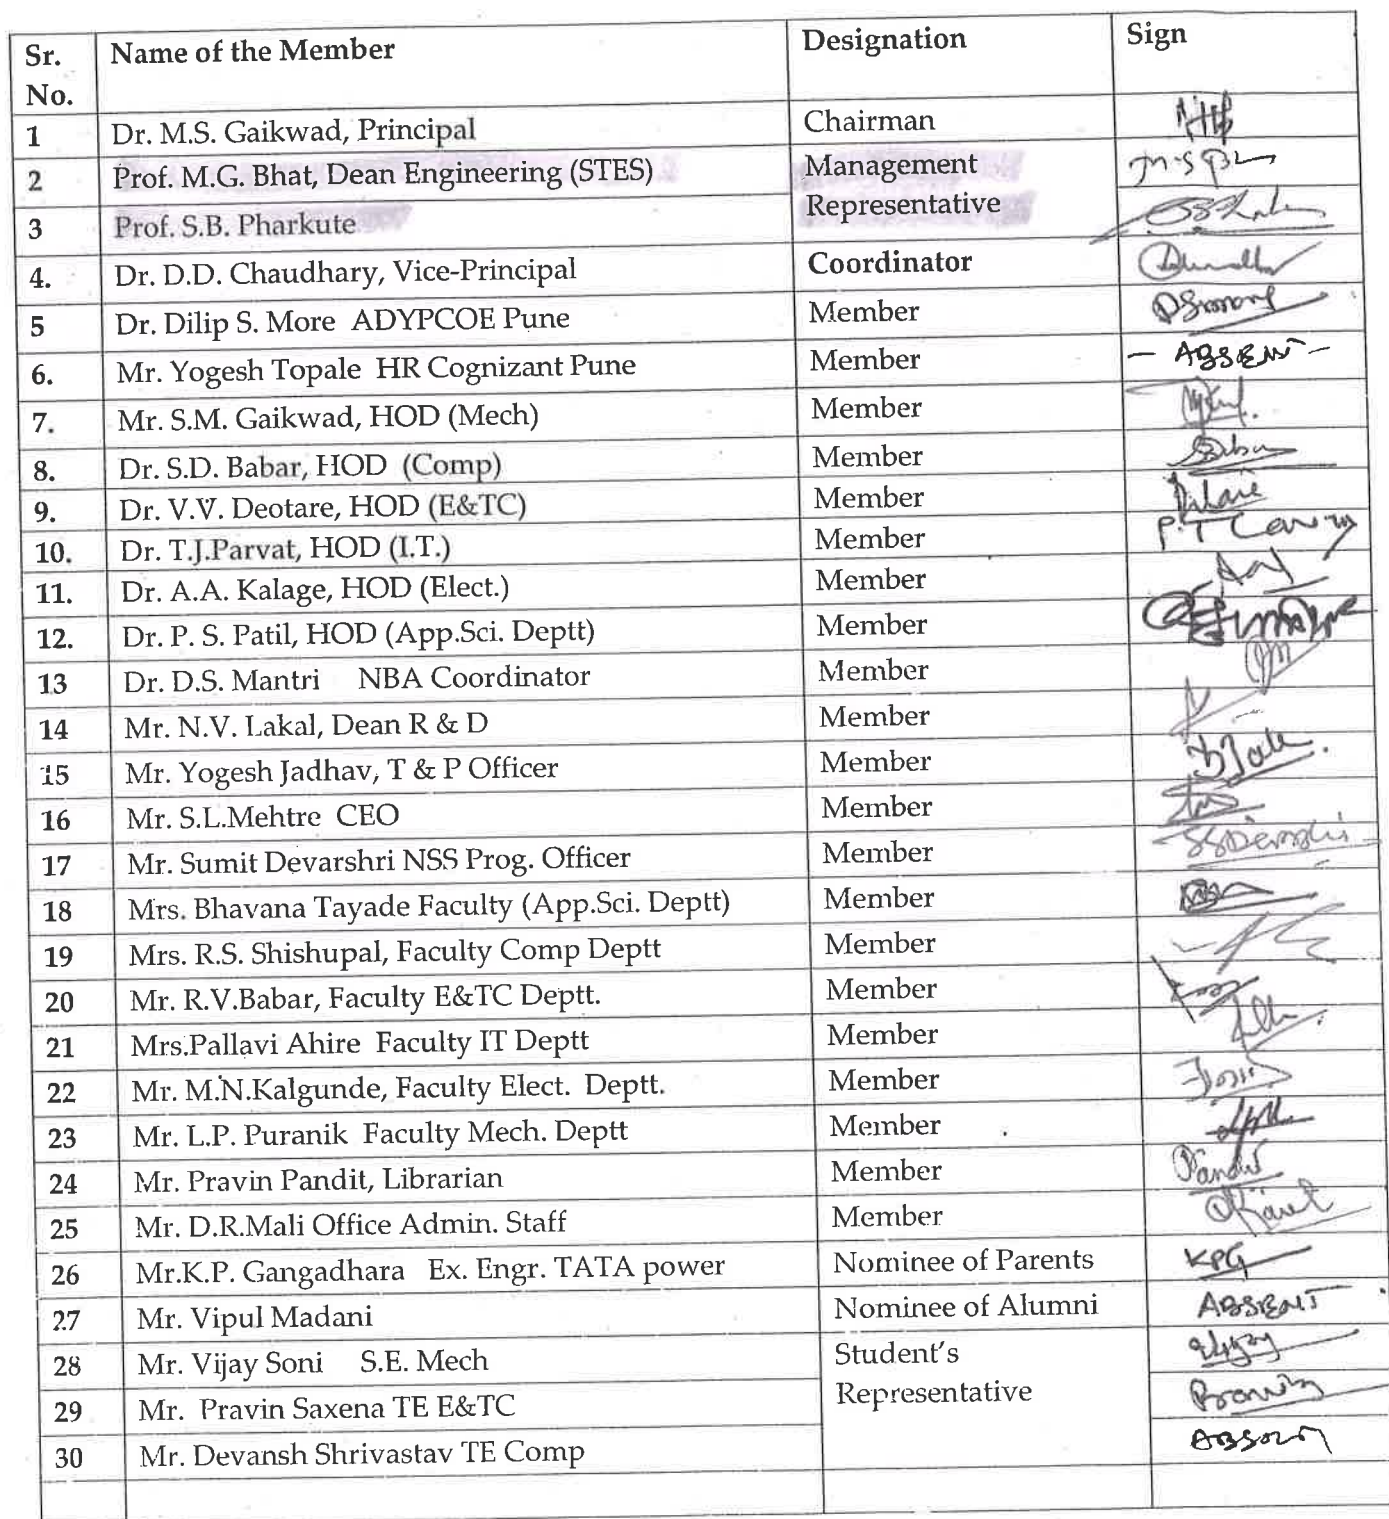 Sr. No. Name of the Member Designation Sign
1 Dr. M.S. Gaikwad, Principal Chairman
2 Prof. M.G. Bhat, Dean Engineering (STES) Management Representative
3 Prof. S.B. Pharkute
4. Dr. D.D. Chaudhary, Vice-Principal Coordinator
5 Dr. Dilip S. More ADYPCOE Pune Member
6. Mr. Yogesh Topale HR Cognizant Pune Member - ABSENT -
7. Mr. S.M. Gaikwad, HOD (Mech) Member
8. Dr. S.D. Babar, HOD (Comp) Member
9. Dr. V.V. Deotare, HOD (E&TC) Member
10. Dr. T.J.Parvat, HOD (I.T.) Member
11. Dr. A.A. Kalage, HOD (Elect.) Member
12. Dr. P. S. Patil, HOD (App.Sci. Deptt) Member
13 Dr. D.S. Mantri NBA Coordinator Member
14 Mr. N.V. Lakal, Dean R & D Member
15 Mr. Yogesh Jadhav, T & P Officer Member
16 Mr. S.L.Mehtre CEO Member
17 Mr. Sumit Devarshri NSS Prog. Officer Member
18 Mrs. Bhavana Tayade Faculty (App.Sci. Deptt) Member
19 Mrs. R.S. Shishupal, Faculty Comp Deptt Member
20 Mr. R.V.Babar, Faculty E&TC Deptt. Member
21 Mrs.Pallavi Ahire Faculty IT Deptt Member
22 Mr. M.N.Kalgunde, Faculty Elect. Deptt. Member
23 Mr. L.P. Puranik Faculty Mech. Deptt Member
24 Mr. Pravin Pandit, Librarian Member
25 Mr. D.R.Mali Office Admin. Staff Member
26 Mr.K.P. Gangadhara Ex. Engr. TATA power Nominee of Parents KPG
27 Mr. Vipul Madani Nominee of Alumni ABSENT
28 Mr. Vijay Soni S.E. Mech Student's Representative
29 Mr. Pravin Saxena TE E&TC
30 Mr. Devansh Shrivastav TE Comp ABSENT